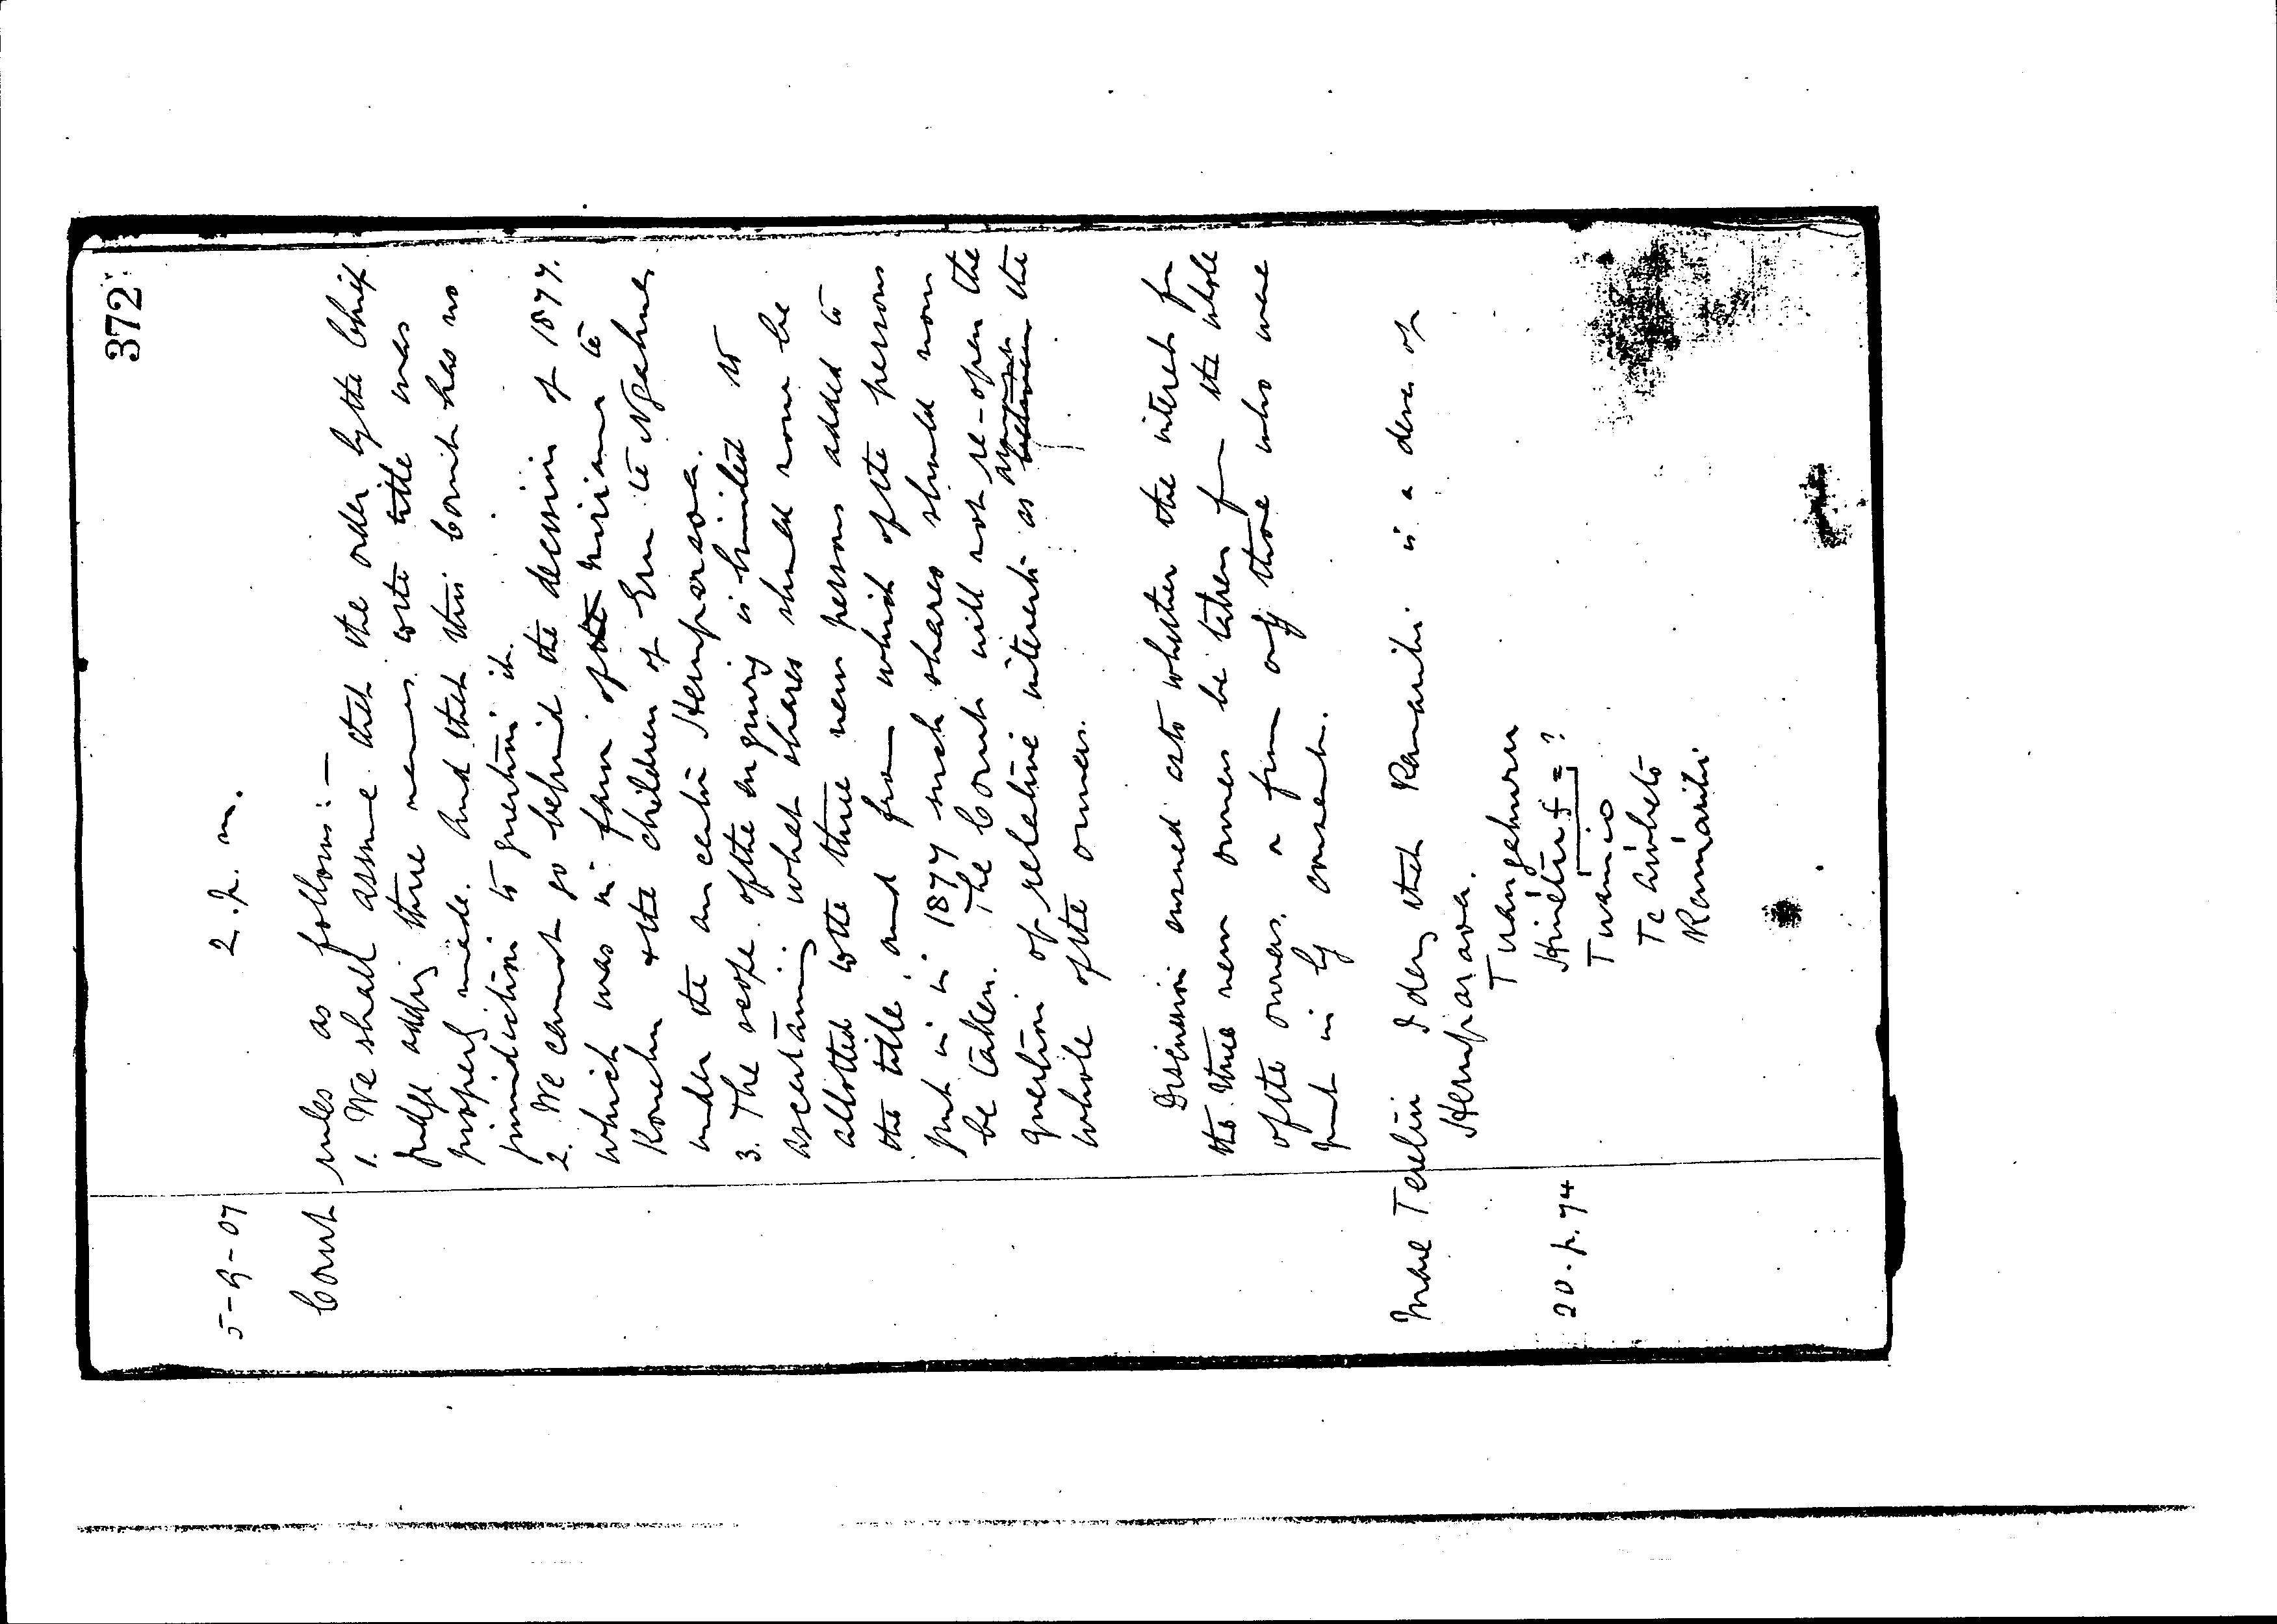 372
5-9-07 2.p.m.
Court rules as follows:—
1. We shall assume that the order by the Chief
Judge adding three names to the title was
properly made. And that this Court has no
jurisdiction to question it.
2. We cannot go behind the decision of 1877.
which was in favour of the Miriama te
Konehu & the children of Eru te Ngahue
under the ancestor Hemiparaoa.
3. The scope of the inquiry is limited to
ascertaining what shares should now be
allotted to the three new persons added to
the title, and from which of the persons
put in in 1877 such shares should now
be taken. The Court will not re-open the
question of relative interests as amongst between the
whole of the owners.
Discussion ensued as to whether the interests for
the three new owners be taken from the whole
of the owners, or from only those who were
put in by consent.
Mare Teretiu I deny that Ramarihi is a desc of
Hemiparaoa.
Tuangahuru
20. p. 74 Hinetiu f = ?
Tuainio
Te Aroheto
Ramarihi